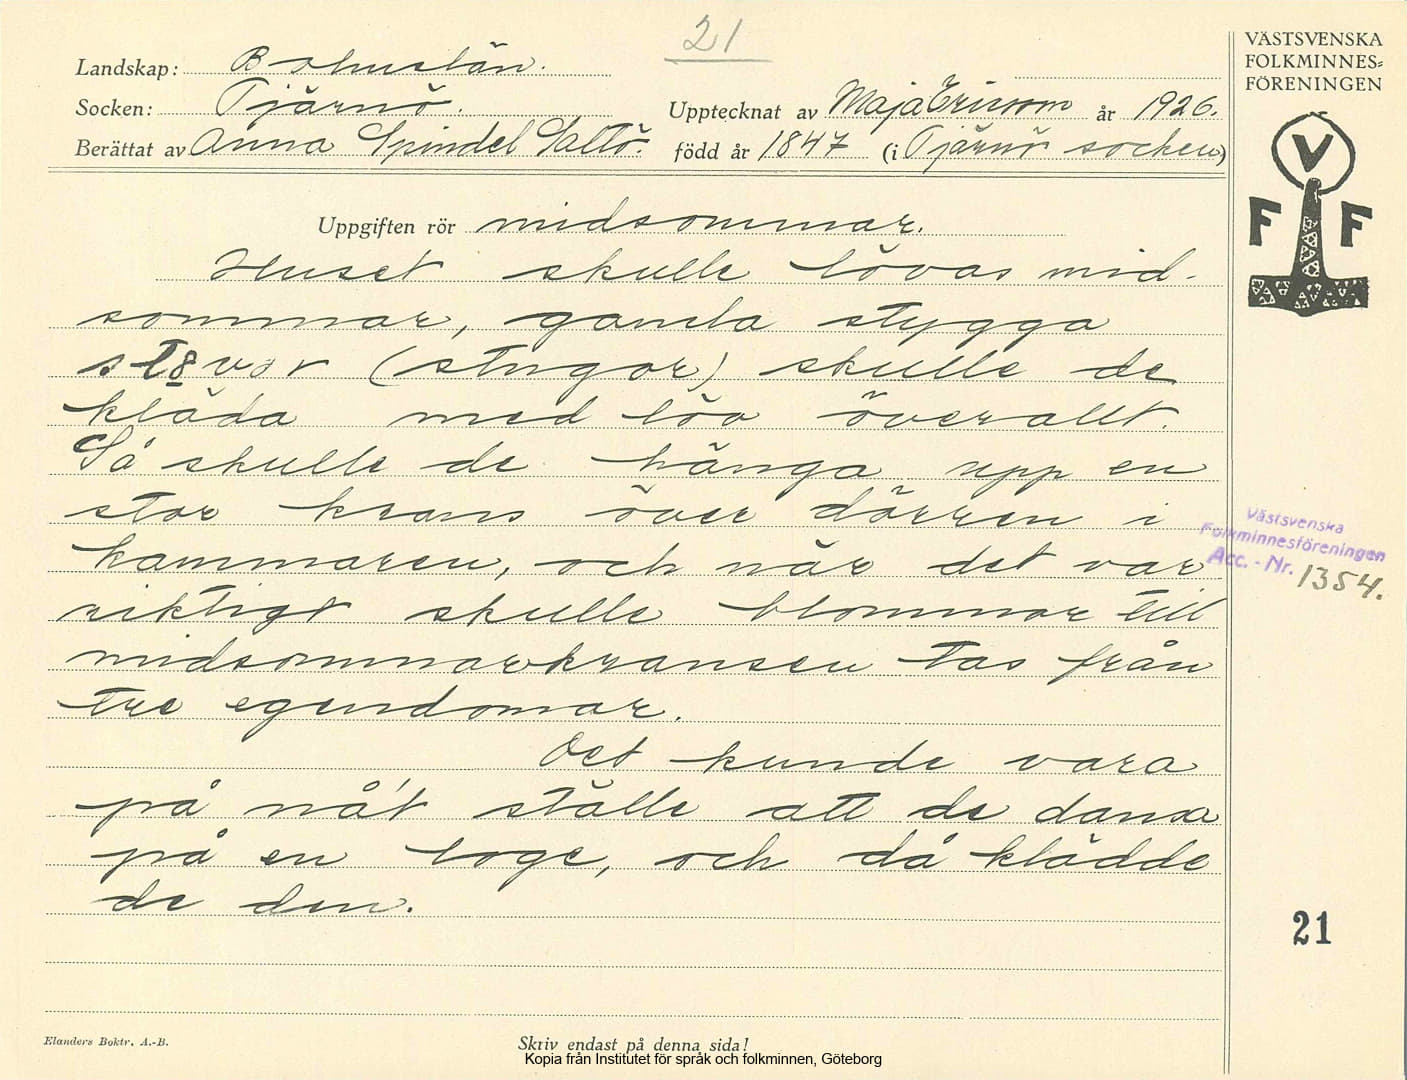 21
Landskap: Bohuslän.
Socken: Tjärnö.
Upptecknat av Maja Ericson år 1926.
Berättat av Anna Spindel Saltö. född år 1847 (i Tjärnö socken)
VÄSTSVENSKA
FOLKMINNES=
FÖRENINGEN
V
F F
Uppgiften rör midsommar.
Huset skulle lövas mid-
sommar, gamla stygga
(stugor) skulle de
kläda med löv överallt.
Så skulle de hänga upp en
stor krans över dörren i
kammaren, och när det var
riktigt skulle blommor till
midsommarkransen tas från
tre egendomar.
Det kunde vara
på nå't ställe att de dansa
på en loge, och då klädde
de den.
Västsvenska
Folkminnesföreningen
Acc. - Nr. 1354.
21
Elanders Boktr. A.-B.
Skriv endast på denna sida!
Kopia från Institutet för språk och folkminnen, Göteborg